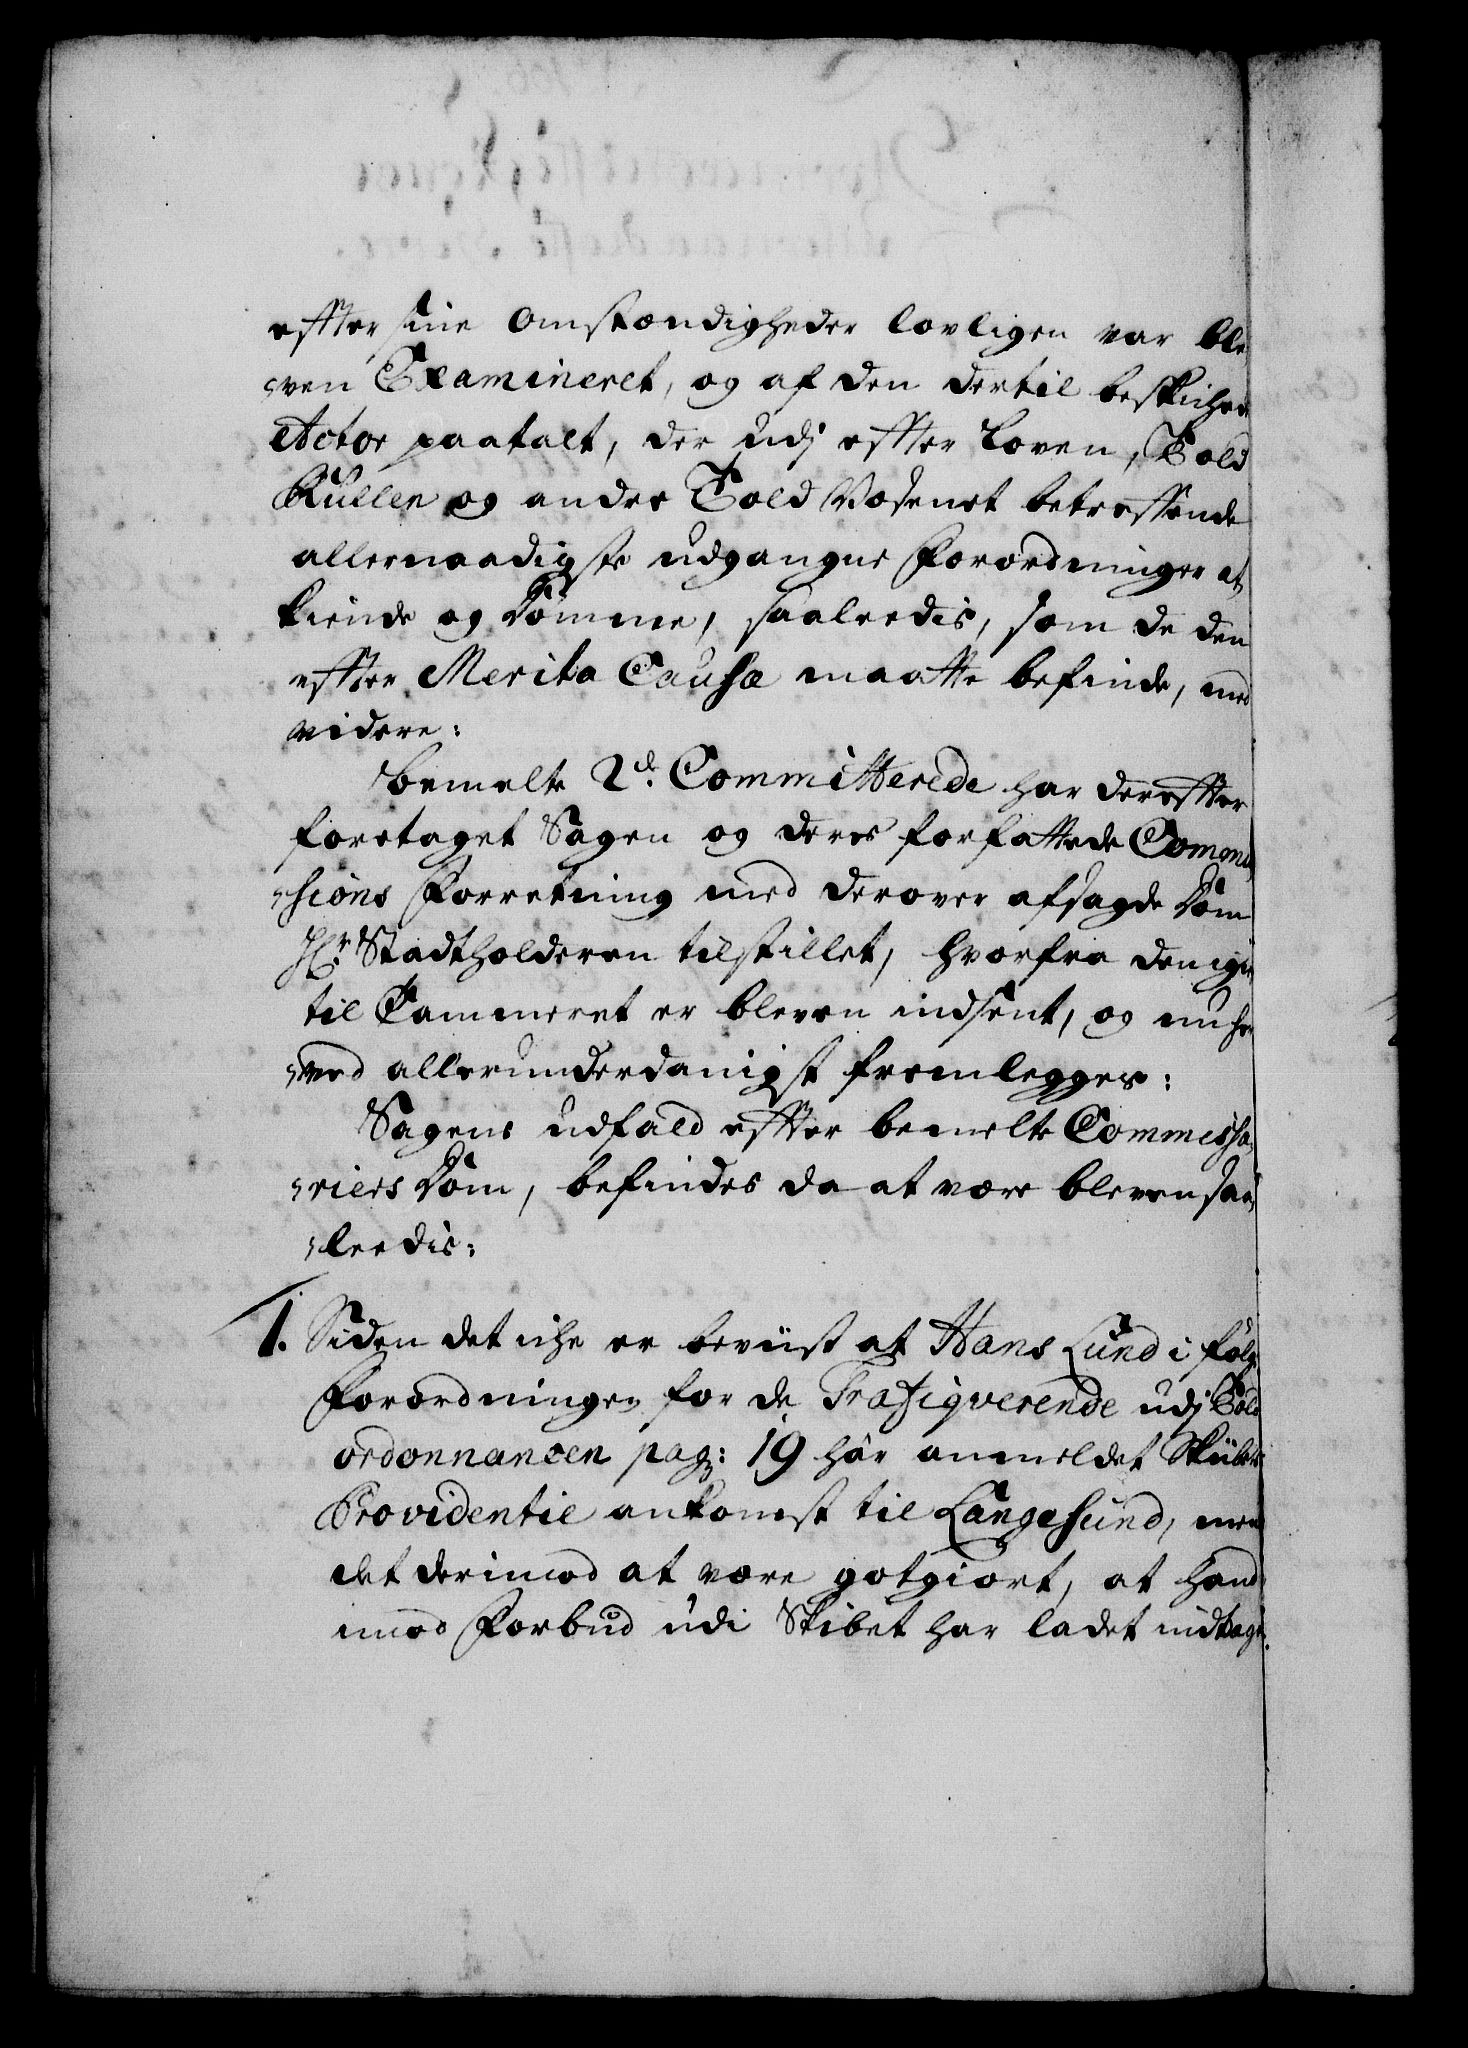 effter sine Omstændigheder lovligen var ble,
,,ven Examineret, og af den dertil beskichede
Actor paatalt, der udj effter Loven, Told
Rullen og andre Told Væsenet betreffende
allernaadigste udgangne Forordninger at
kiende og Dømme, saaleedis, som de den
effter Merita Causæ maatte befinde, med
videre:
Bemelte 2de. Committerede har dereffter
foretaget Sagen og deres forfattede Commis,
,,sions Forretning med derover afsagde Dom
Hr. Stadtholderen tilstillet, hvorfra den igien
til Cammeret er bleven indsent, og nu her
,,ved allerunderdanigst fremlegges:
Sagens udfald effter bemelte Commissa,
,,riers Dom, befindes da at være bleven saa,
,,leedis:
1. Siden det iche er beviist at Hans Lund i følge
Forordningen for de Trafiqverende udj Told
ordonnancen pag: 19 har anmeldet Skibets
Providentiæ ankomst til Langesund, men
det derimod at være gotgiort, at hand
imod Forbud udi Skibet har ladet indtage